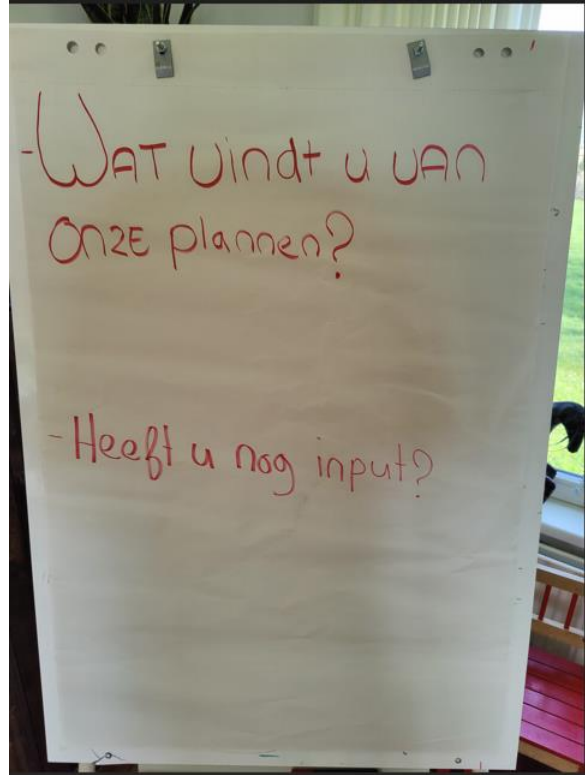 -WAT vindt u VAN
ONZE plannen?
-Heeft u nog input?